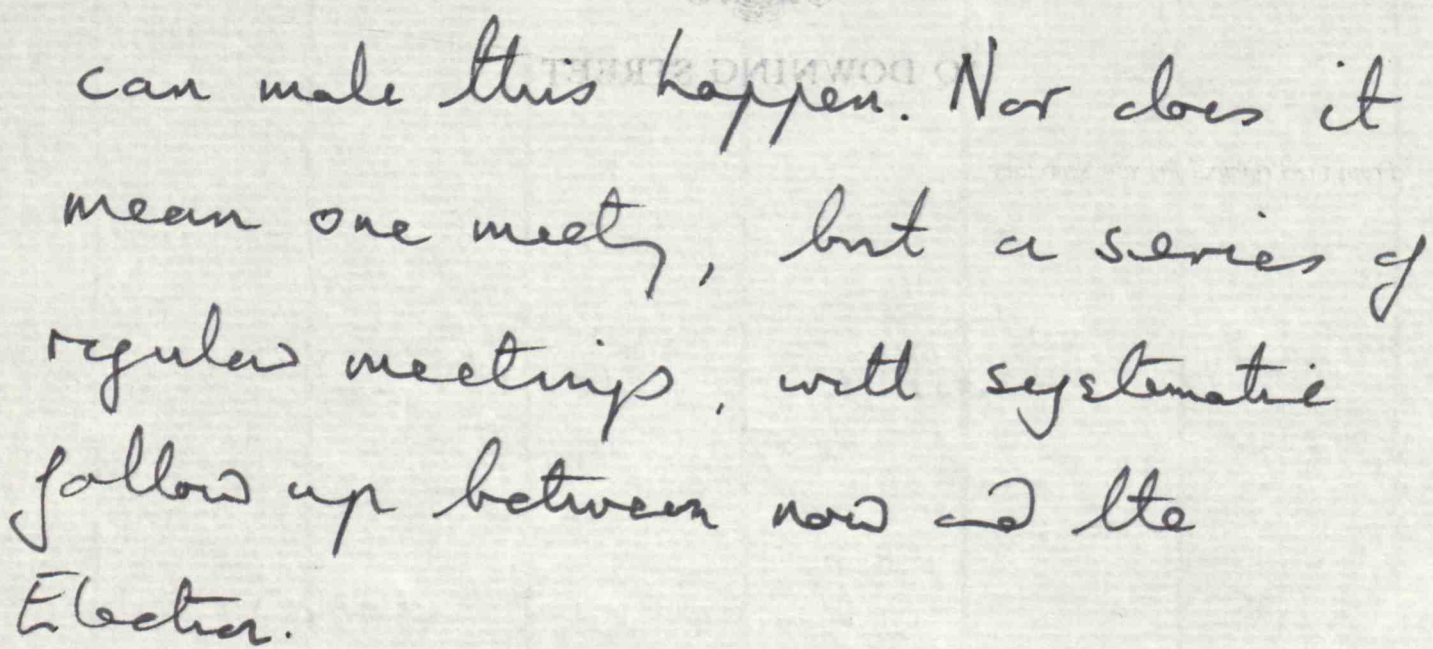 can make this happen. Nor does it
mean one meeting, but a series of
regular meetings, with systematic
follow up between now and the
Election.